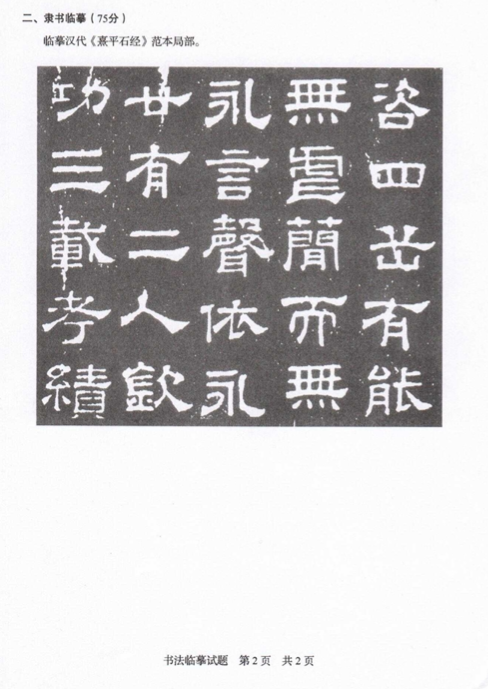 二、隶书临摹（75分）
临摹汉代《熹平石经》范本局部。
咨四岳有能
無虐簡而無
永言聲依永
廿有二人欽
功三載考績
书法临摹试题　第2页　共2页